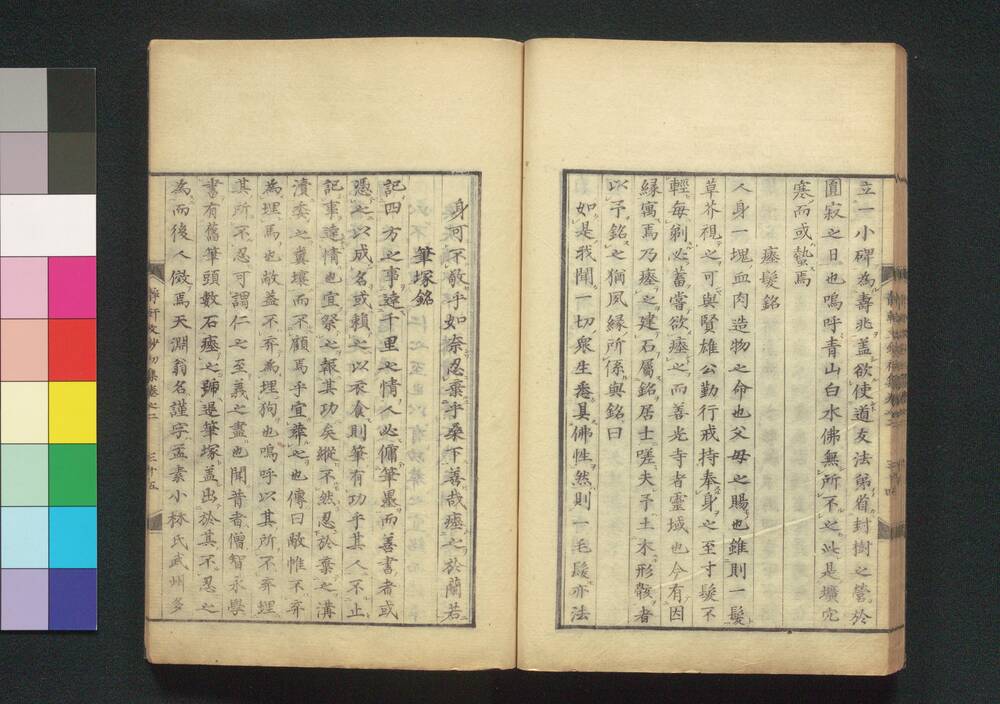 立一小碑為壽兆蓋欲使道友法弟省封樹之營於
圓寂之日也嗚呼青山白水佛無所不之此是壙穴
寒而或蟄焉
瘞髮銘
人身一塊血肉造物之命也父母之賜也雖則一髮
草芥視之可與賢雄公勤行戒持奉身之至寸髮不
輕每剃必蓄嘗欲瘞之而善光寺者靈域也今有因
縁寓焉乃瘞之建石屬銘居士嗟夫予土木形骸者
以予銘之猶夙縁所係與銘曰
如是我聞一切衆生悉具佛性然則一毛髮亦法
身可不敬乎如奈忍棄乎桑下善哉瘞之於蘭若
筆塚銘
記四方之事達千里之情人必傭筆墨而善書者或
憑之以成名或賴之以衣食則筆有功乎其人不止
記事達情也宜祭之報其功矣縱不然忍於棄之溝
瀆委之糞壤而不顧焉乎宜葬之也傳曰敝惟不弃
為埋馬也敝蓋不弃為埋狗也嗚呼以其所不弃埋
其所不忍可謂仁之至義之盡也聞昔者僧智永學
書有舊筆頭數石瘞之號退筆塚蓋出於其不忍之
為而後人傚焉天淵翁名謹字孟素小林氏武州多
靜軒文鈔初集卷之二
三十五